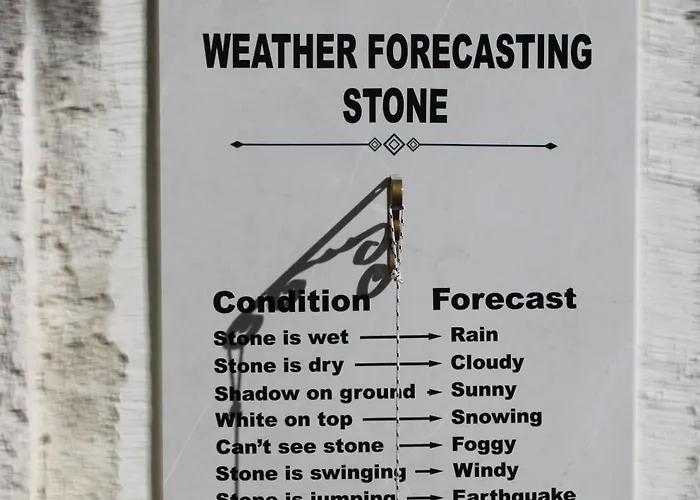 WEATHER FORECASTING
STONE
Condition Forecast
Stone is wet Rain
Stone is dry Cloudy
Shadow on ground Sunny
White on top Snowing
Can't see stone Foggy
Stone is swinging Windy
Stone is jumping Earthquake